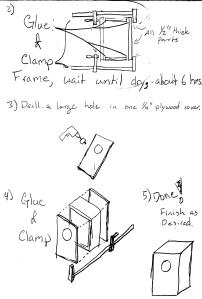 2)
Glue
&
Clamp
All 1/2" thick
parts
Frame, wait until dry, about 6 hrs
3) Drill a large hole in one 1/4" plywood cover.
4) Glue
&
Clamp
5) Done!
Finish as
Desired.